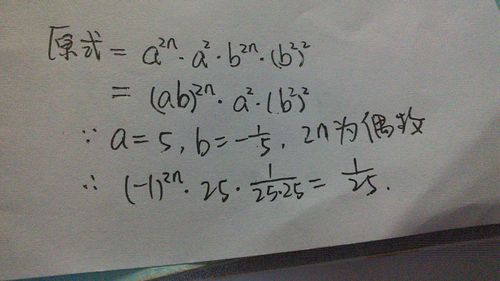 原式 = a²ⁿ · a² · b²ⁿ · (b²)²
= (ab)²ⁿ · a² · (b²)²
∵ a = 5, b = -1/5, 2n 为偶数
∴ (-1)²ⁿ · 25 · 1/(25·25) = 1/25.